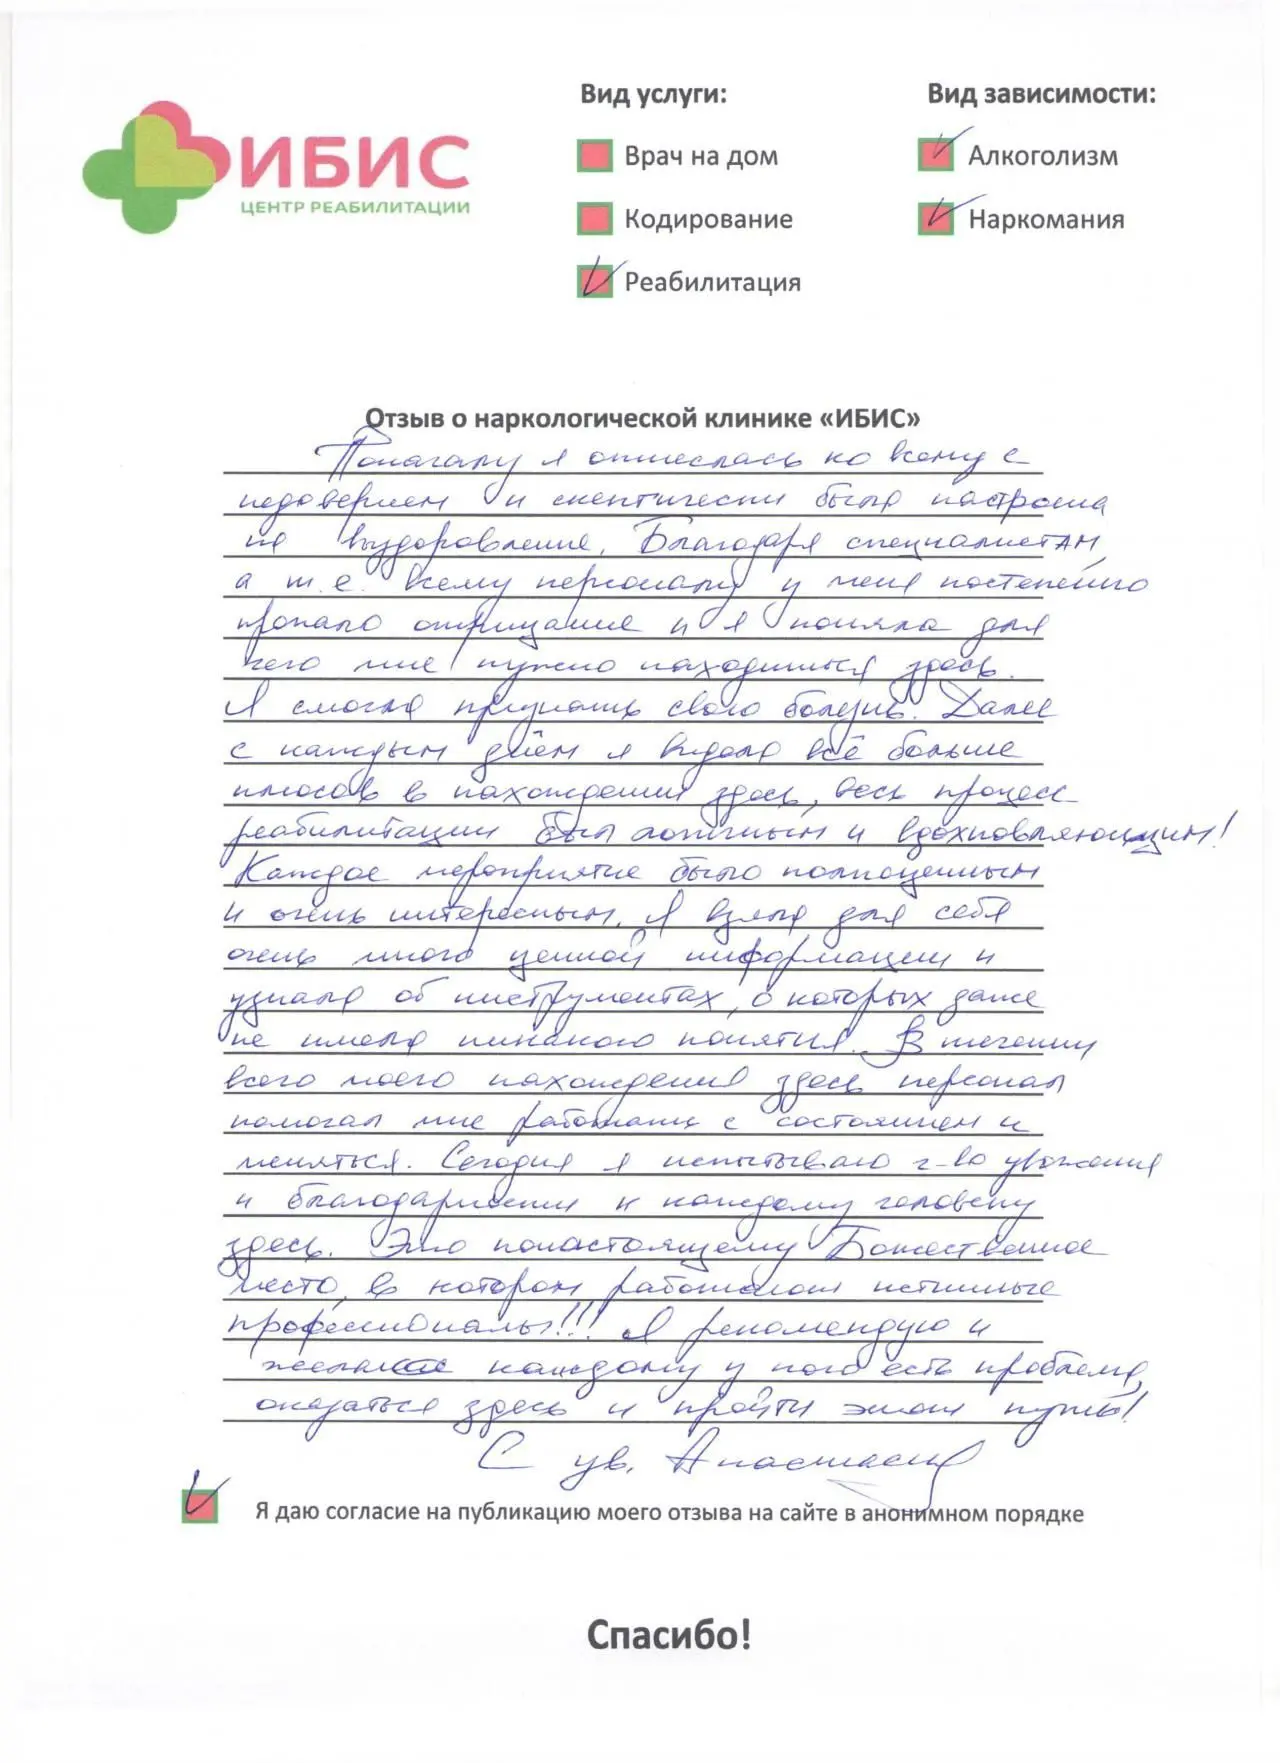 ИБИС
ЦЕНТР РЕАБИЛИТАЦИИ
Вид услуги:
Врач на дом
Кодирование
Реабилитация
Вид зависимости:
Алкоголизм
Наркомания
Отзыв о наркологической клинике «ИБИС»
Поначалу я отнеслась ко всему с
недоверием и скептически была настроена
на выздоровление. Благодаря специалистам,
а т.е. всему персоналу у меня постепенно
пропало отрицание и я поняла для
чего мне нужно находиться здесь.
Я смогла признать свою болезнь. Далее
с каждым днём я видела всё больше
плюсов в нахождении здесь, весь процесс
реабилитации был логичным и вдохновляющим!
Каждое мероприятие было полноценным
и очень интересным. Я взяла для себя
очень много ценной информации и
узнала об инструментах, о которых даже
не имела никакого понятия. В течении
всего моего нахождения здесь персонал
помогал мне работать с состоянием и
меняться. Сегодня я испытываю ч-во уважения
и благодарности к каждому человеку
здесь. Это понастоящему Божественное
место, в котором работают истинные
профессионалы!!! Я рекомендую и
желаю каждому у кого есть проблема,
оказаться здесь и пройти этот путь!
С ув. Анастасия
Я даю согласие на публикацию моего отзыва на сайте в анонимном порядке
Спасибо!